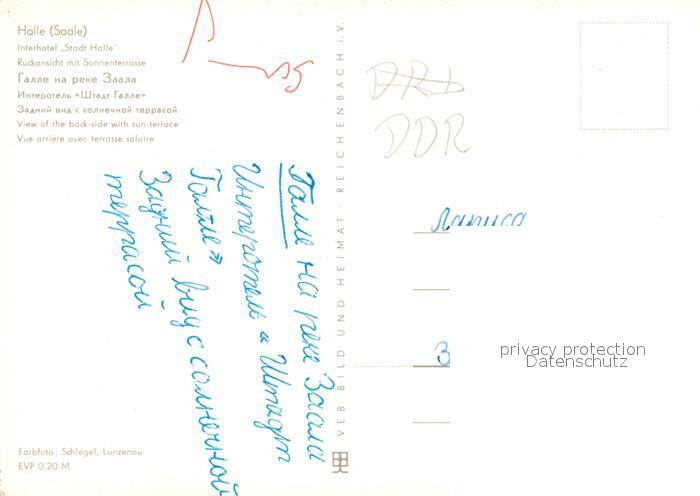 Halle (Saale)
Interhotel „Stadt Halle"
Rückansicht mit Sonnenterrasse
Галле на реке Заала
Интеротель «Штадт Галле»
Задний вид с солнечной террасой
View of the back-side with sun-terrace
Vue arrière avec terrasse solaire
Галле на реке Заала
Интеротель « Штадт
Галле»
Задний вид с солнечной
террасой
Farbfoto: Schlegel, Lunzenau
EVP 0,20 M
VEB BILD UND HEIMAT · REICHENBACH i. V.
DDR
З
privacy protection
Datenschutz